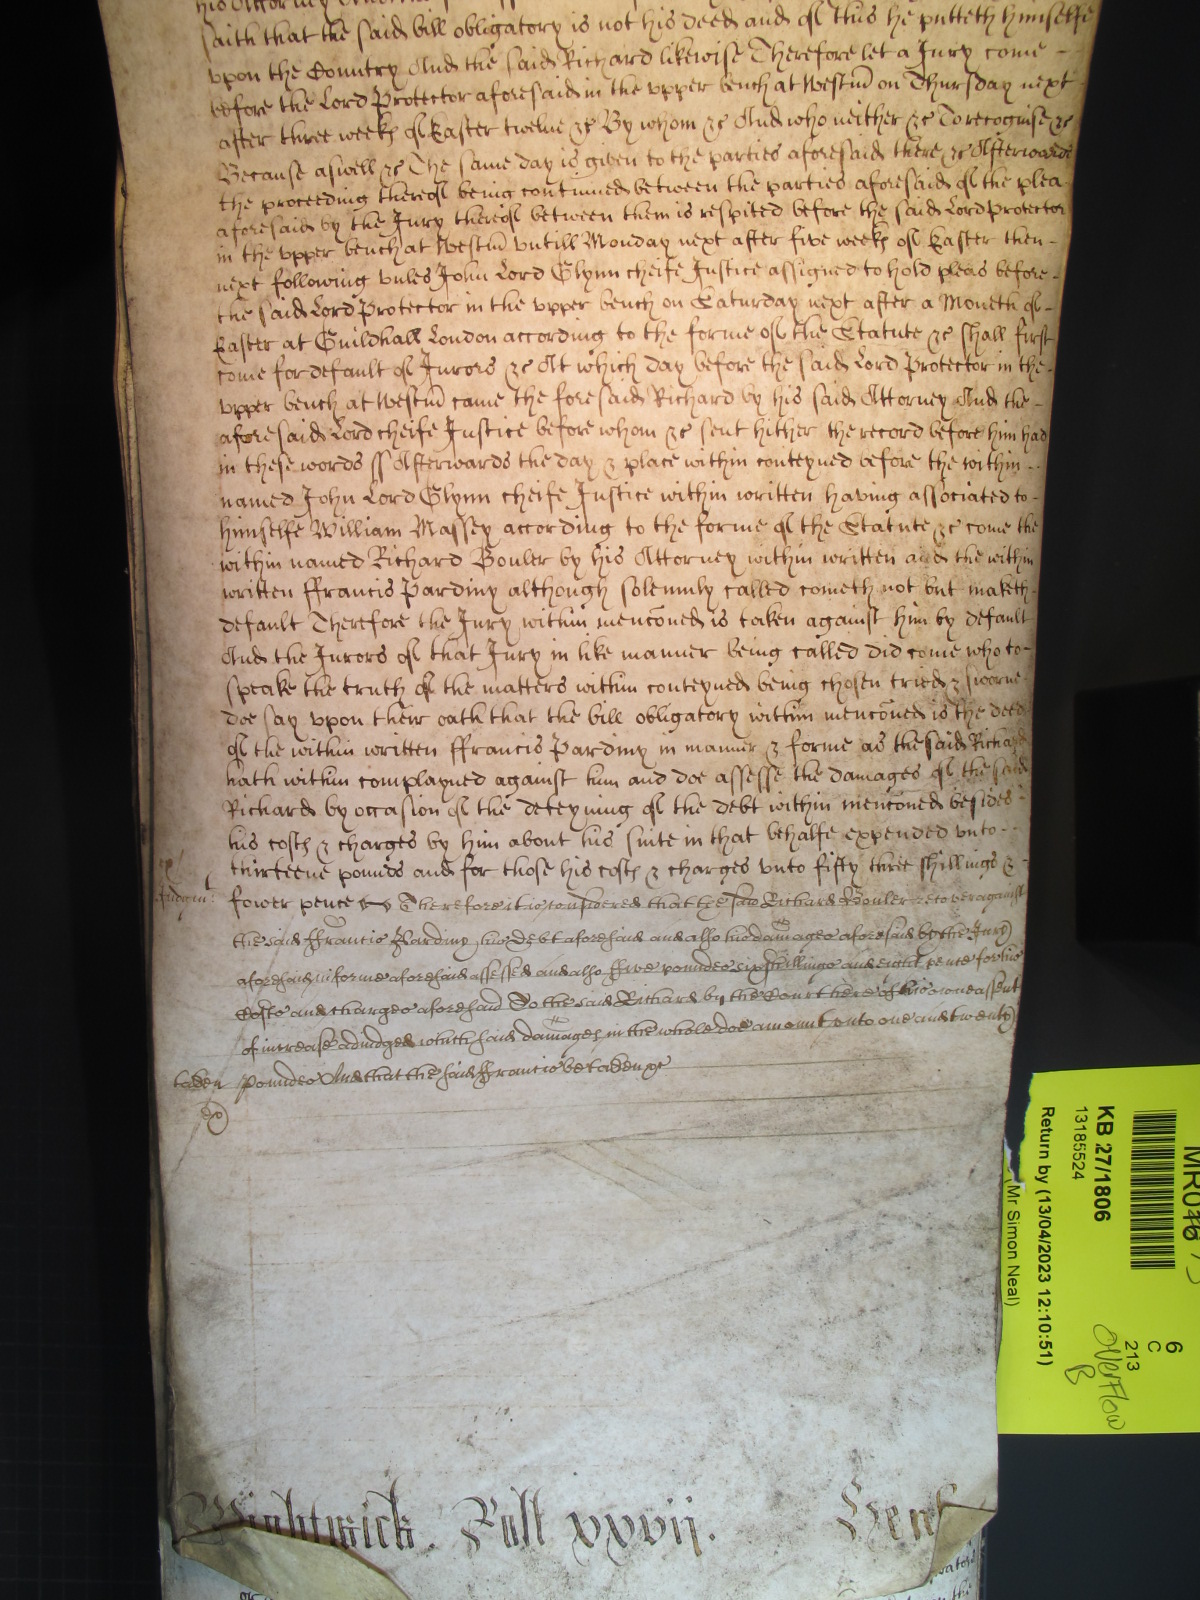 his Attorney
saith that the said bill obligatory is not his deed and of this he putteth himselfe
vpon the Country And the said Richard likewise Therefore let a Jury come -
before the Lord Protector aforesaid in the vpper bench at Westm̄ on Thursday next
after three weeks of Easter twelve &c By whom &c And who neither &c To recognise &c
Because aswell &c The same day is given to the parties aforesaid there &c Afterwards
the proceeding thereof being continued betweene the parties aforesaid of the plea
aforesaid by the Jury thereof between them is respited before the said Lord Protector
in the vpper bench at Westm̄ vntill Monday next after five weeks of Easter then -
next following vnles John Lord Glynn cheife Justice assigned to hold pleas before -
the said Lord Protector in the vpper bench on Saturday next after a Moneth of -
Easter at Guildhall London according to the forme of the Statute &c shall first
come for default of Jurors &c At which day before the said Lord Protector in the -
vpper bench at Westm̄ came the foresaid Richard by his said Attorney And the -
aforesaid Lord cheife Justice before whom &c sent hither the record before him had
in these words ss Afterwards the day & place within conteyned before the within -
named John Lord Glynn cheife Justice within written having associated to -
himselfe William Massey according to the forme of the Statute &c come the
within named Richard Bouler by his Attorney within written and the within
written ffrancis Pardiny although solemnly called cometh not but maketh
default Therefore the Jury within menc̄oned is taken against him by default
And the Jurors of that Jury in like manner being called did come who to -
speake the truth of the matters within conteyned being chosen tried & sworne
doe say vpon their oath that the bill obligatory within menc̄oned is the deed
of the within written ffrancis Pardiny in manner & forme as the said Richard
hath within complayned against him and doe assesse the damages of the said
Richard by occasion of the deteyning of the debt within menc̄oned besides -
his costs & charges by him about his suite in that behalfe expended vnto -
thirteene pounds and for those his costs & charges vnto fifty three shillings & -
Judgmt fower pence Therefore it is considered that the said Richard Bouler recover against
the said ffrancis Pardiny his debt aforesaid and also his damages aforesaid by the Jury
aforesaid in forme aforesaid assessed and also ffive poundes six shillings and eight pence for his
Costs and charges aforesaid To the said Richard by the Court here of his owne assent
of increase adiudged which said damages in the whole doe amount vnto one and twenty
taken poundes And that the said ffrancis be taken &c
Wightwick. Roll xxvij.
MR0
6
C
213
Overflow
B
KB 27/1806
13185524
Return by (13/04/2023 12:10:51)
(Mr Simon Neal)